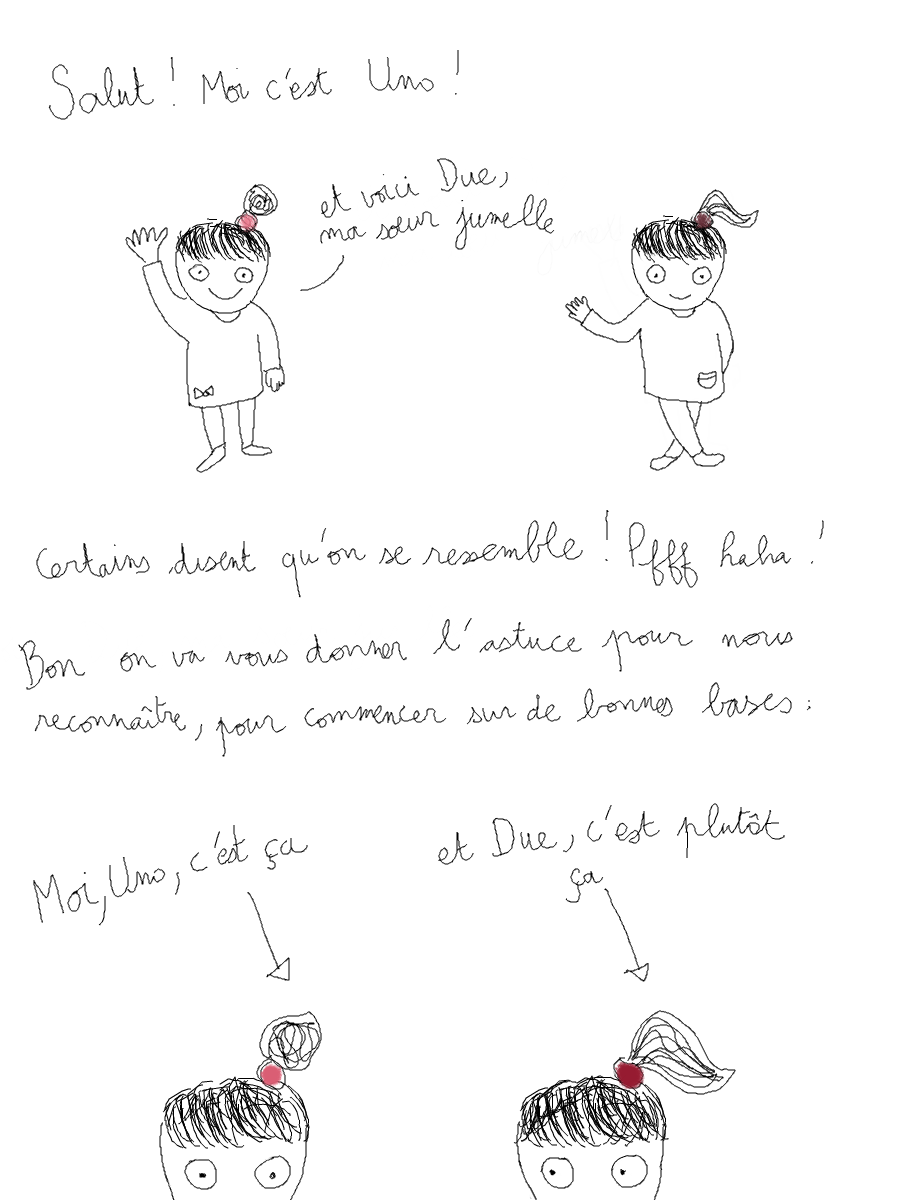 Salut ! Moi c'est Uno !
et voici Due,
ma sœur jumelle
Certains disent qu'on se ressemble ! Pffff haha !
Bon on va vous donner l'astuce pour nous
reconnaître, pour commencer sur de bonnes bases :
Moi, Uno, c'est ça
et Due, c'est plutôt
ça